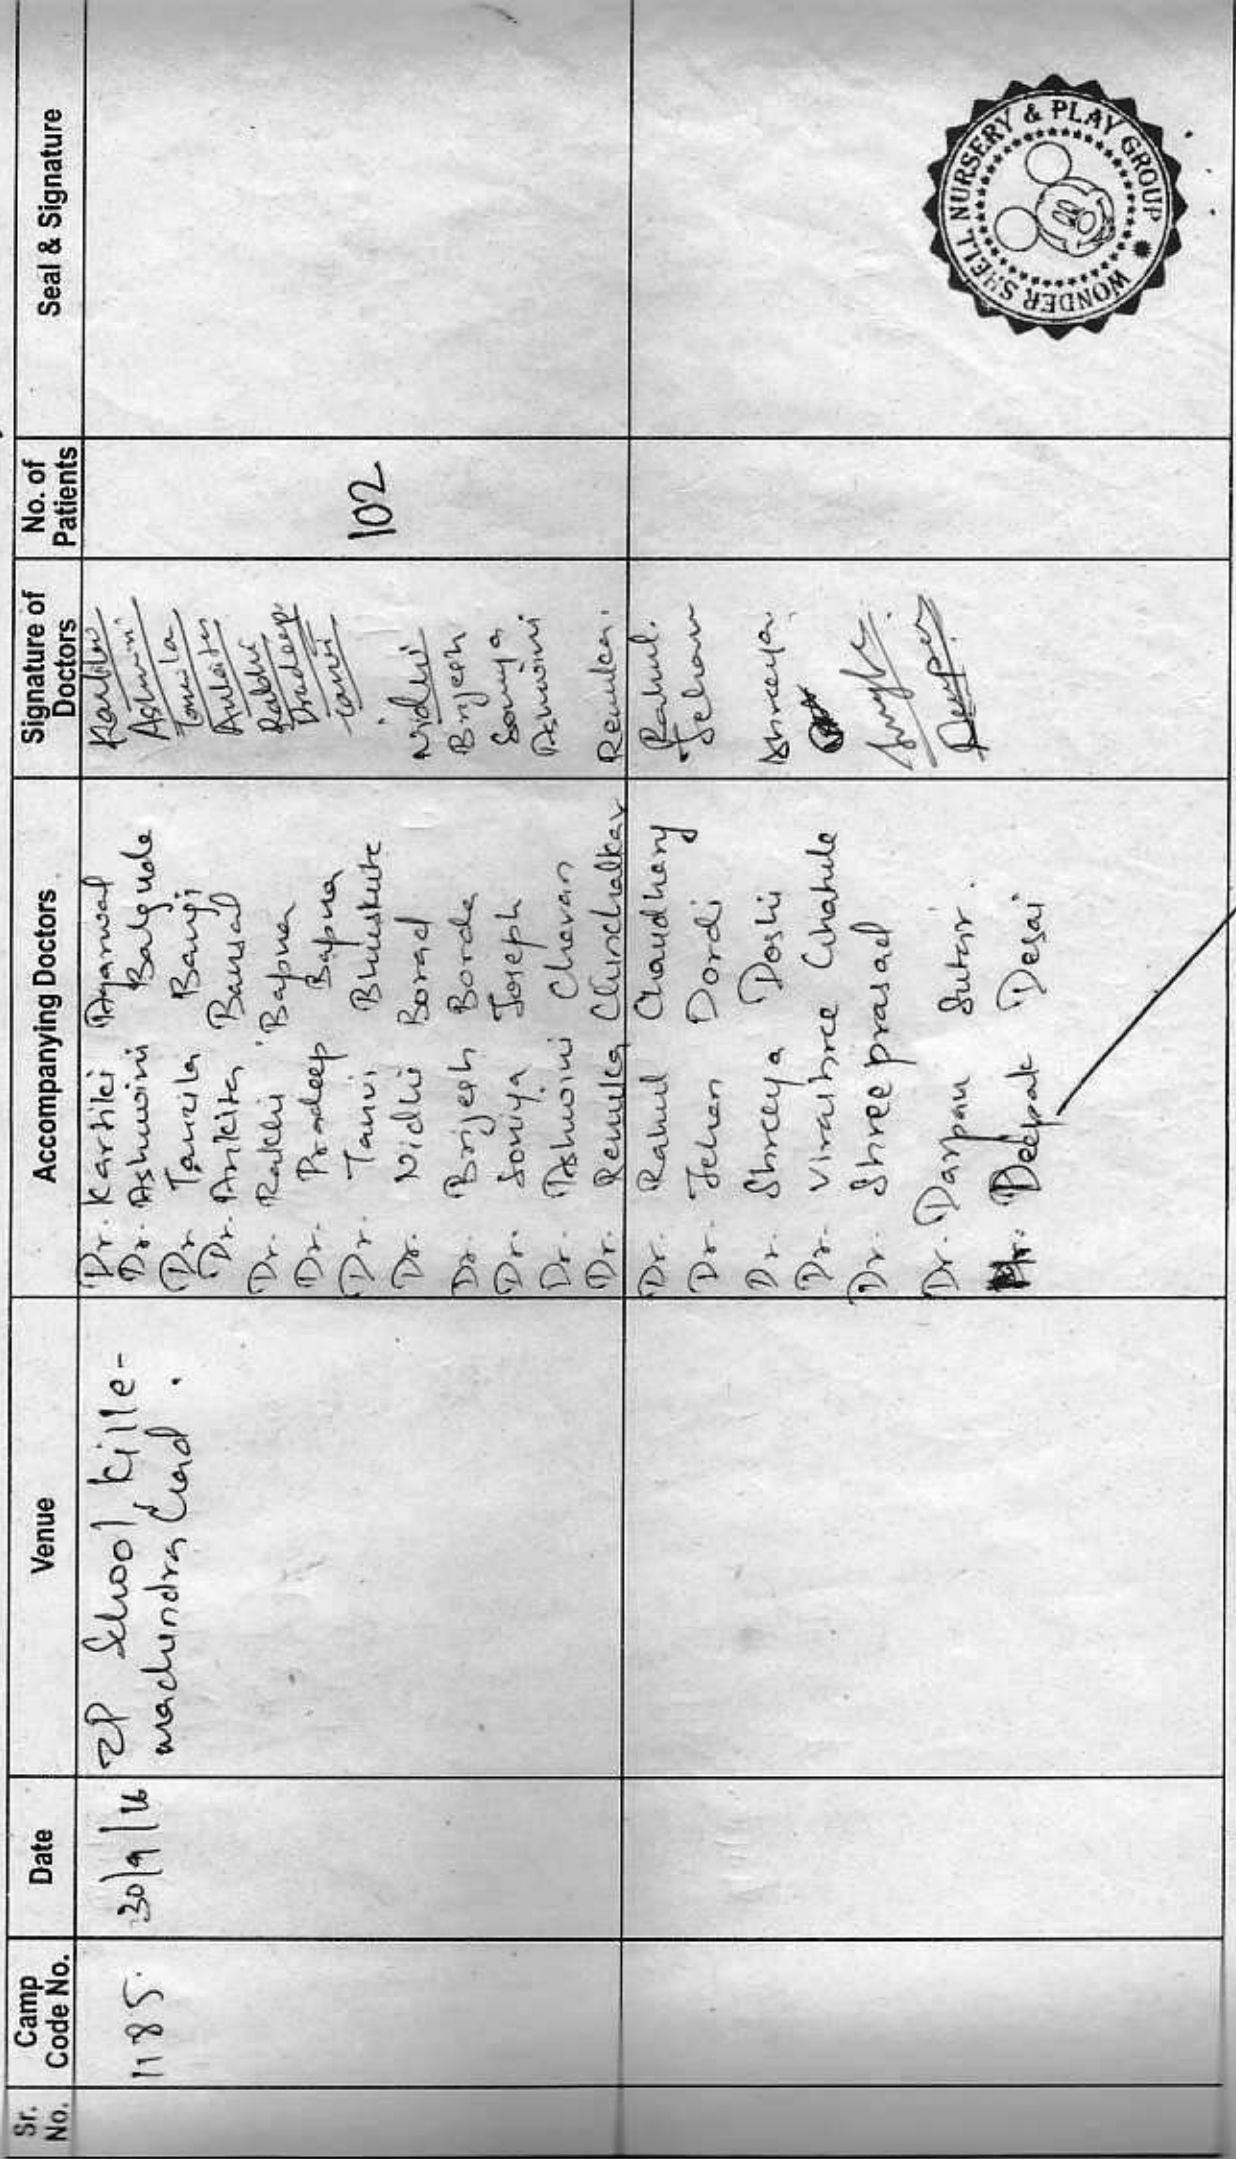 Sr. No.
Camp Code No.
Date
Venue
Accompanying Doctors
Signature of Doctors
No. of Patients
Seal & Signature
1185.
30/9/16
ZP School, Kille-
machindra Gad.
Dr. Kartiki Agarwal
Dr. Ashwini Balgude
Dr Tanzila Bangi
Dr. Ankita Bansal
Dr. Rakhi Bapna
Dr. Pradeep Bapna
Dr. Tanvi Bhuskute
Dr. Nidhi Borad
Dr. Brijesh Borda
Dr. Soniya Joseph
Dr. Ashwini Chavan
Dr. Renuka Chinchalkar
Kartiki
Ashwini
Tanzila
Ankita
Rakhi
Pradeep
Tanvi
Nidhi
Brijesh
Soniya
Ashwini
Renuka.
102
Dr. Rahul Chaudhary
Dr. Jehan Dordi
Dr. Shreeya Doshi
Dr. Virashree Chahule
Dr. Shree prasad
Dr. Darpan Sutar.
Dr. Deepak Desai
Rahul.
Jehan
Shreeya.
WONDER SHELL NURSERY & PLAY GROUP